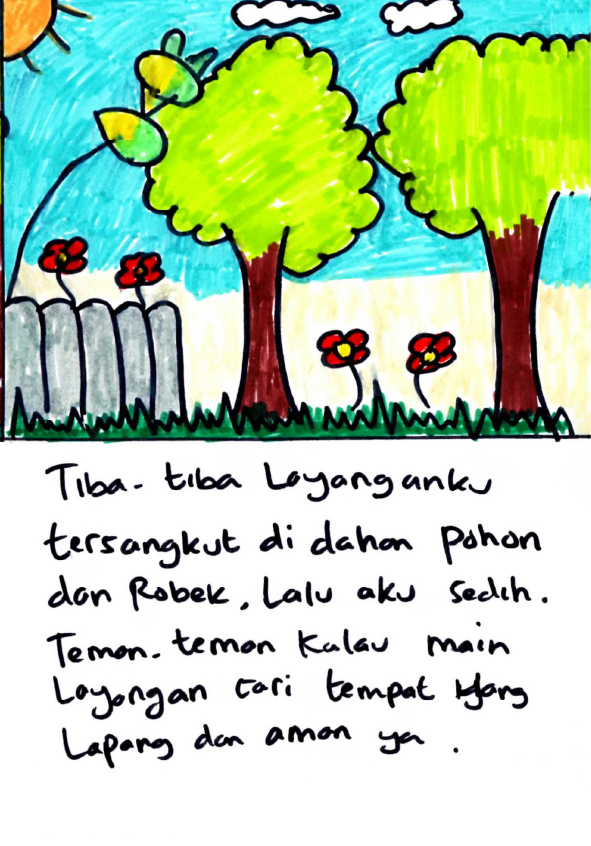 Tiba-tiba Layanganku
tersangkut di dahan pohon
dan Robek, Lalu aku sedih.
Teman-teman Kalau main
Layangan cari tempat yang
Lapang dan aman ya.